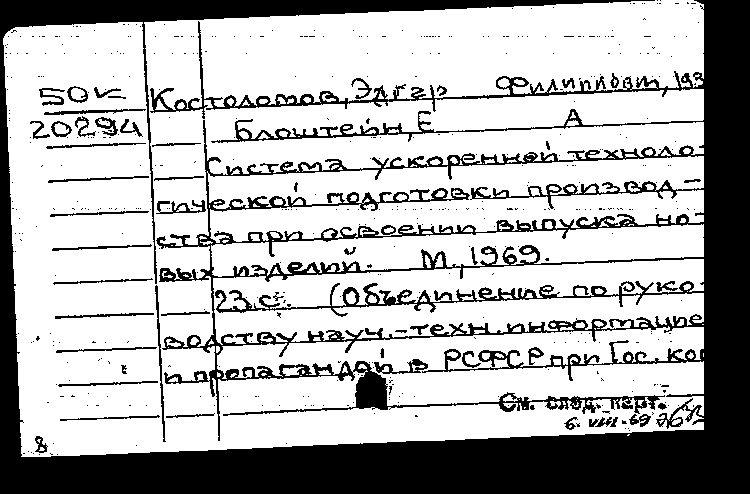 50к Костоломов, Эдгар Филиппович, 193
20294 Блоштейн, Е А
Система ускоренной техноло-
гической подготовки производ-
ства при освоении выпуска но-
вых изделий. М., 1969.
23 с. (Объединение по руко-
водству науч.-техн. информацие
и пропагандой в РСФСР при Гос. ко
См. след. карт.
6. VIII-69
8